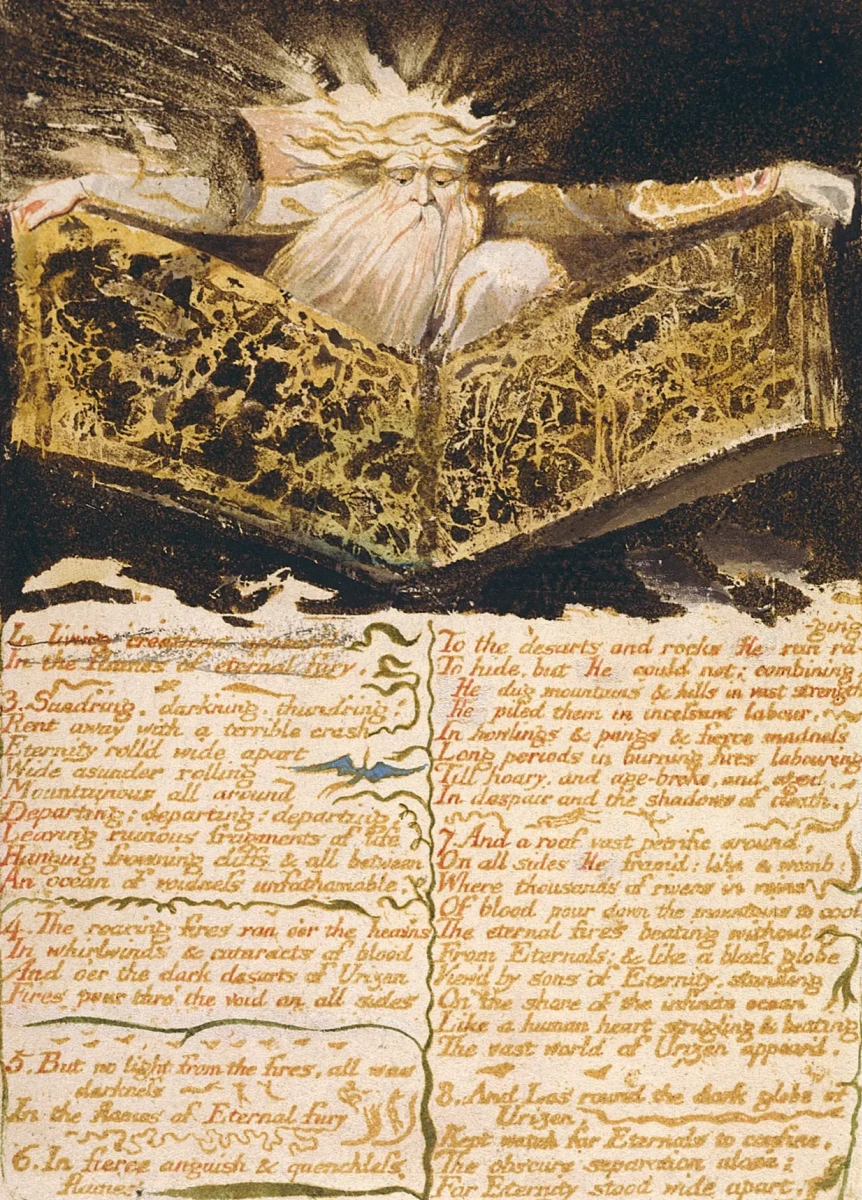 In living creations appear'd
In the flames of eternal fury.
3. Sund'ring, dark'ning, thund'ring!
Rent away with a terrible crash
Eternity roll'd wide apart
Wide asunder rolling
Mountainous all around
Departing; departing: departing:
Leaving ruinous fragments of life
Hanging frowning cliffs & all between
An ocean of voidness unfathomable.
4. The roaring fires ran o'er the heav'ns
In whirlwinds & cataracts of blood
And o'er the dark desarts of Urizen
Fires pour thro' the void on all sides
5. But no light from the fires, all was
darkness
In the flames of Eternal fury
6. In fierce anguish & quenchless
flames
-ging
To the desarts and rocks He ran ra-
To hide, but He could not: combining
He dug mountains & hills in vast strength
He piled them in incessant labour,
In howlings & pangs & fierce madness
Long periods in burning fires labouring
Till hoary, and age-broke, and aged,
In despair and the shadows of death.
7. And a roof vast petrific around,
On all sides He fram'd: like a womb;
Where thousands of rivers in veins
Of blood pour down the mountains to cool
The eternal fires beating without
From Eternals; & like a black globe
View'd by sons of Eternity, standing
On the shore of the infinite ocean
Like a human heart strugling & beating
The vast world of Urizen appear'd.
8. And Los round the dark globe of
Urizen,
Kept watch for Eternals to confine,
The obscure separation alone;
For Eternity stood wide apart,